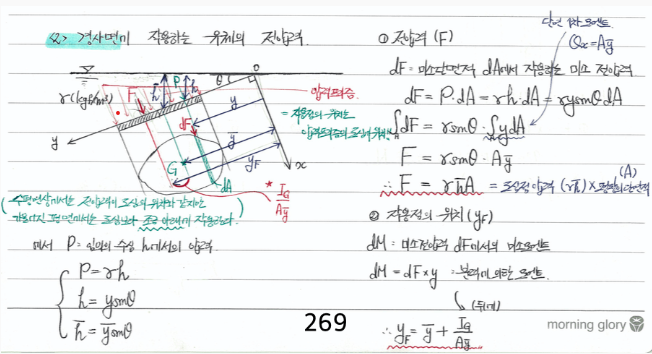 2) 경사면에 작용하는 유체의 전압력.
γ(kgf/m³)
F
h̄
P
h
θ
O
y
dF
y
ȳ
y_F
y
x
G
dA
압력프리즘
= 작용점의 위치는
압력프리즘의 도심의 위치
* I_G
Aȳ
(수평면상에서는 전압력이 도심의 위치와 같지만
기울어진 평면에서는 도심보다 조금 아래에 작용한다.)
에서 P = 임의의 수심 h에서의 압력.
P = γh
h = ysinθ
h̄ = ȳsinθ
① 전압력 (F)
단면 1차 모멘트
Qx = Aȳ
dF = 미소단면적 dA에서 작용하는 미소 전압력
dF = P·dA = γh·dA = γysinθdA
∫dF = γsinθ·∫ydA
F = γsinθ·Aȳ
∴ F = γh̄A = 도심점압력 (γh̄) × 평판단면적 (A)
② 작용점의 위치 (y_F)
dM = 미소전압력 dF에서의 미소모멘트
dM = dF × y : 분력에 의한 모멘트.
(뒤에)
∴ y_F = ȳ + I_G / Aȳ
269
morning glory